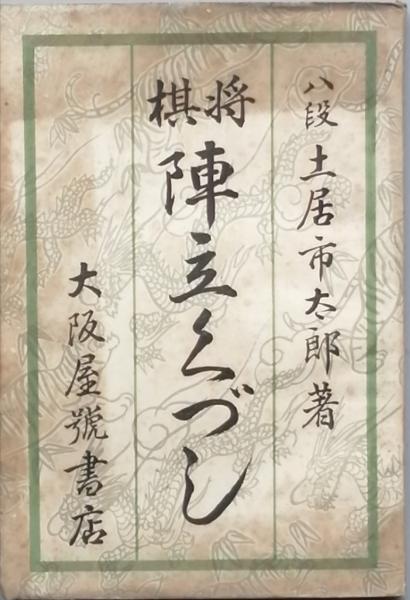 八段 土居市太郎著
将棋
陣立くづし
大阪屋號書店